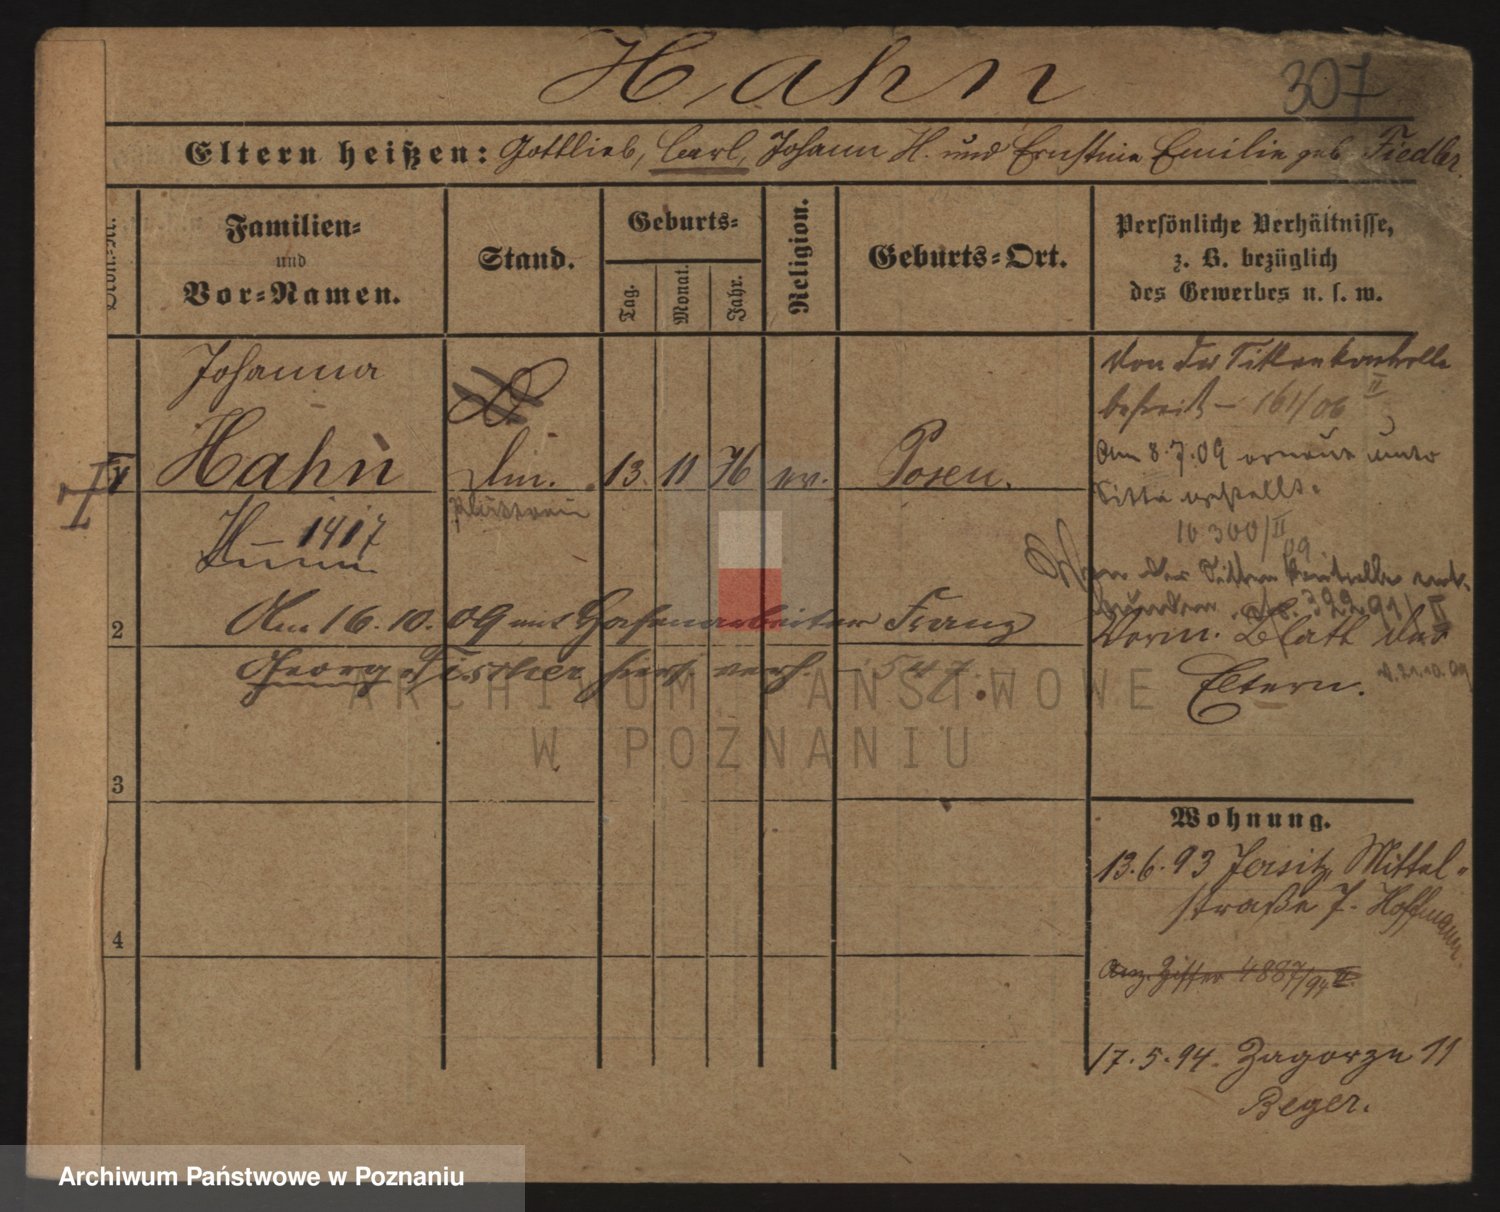 Hahn
307
Eltern heißen: Gottlieb, Carl, Johann H. und Ernstine Emilie geb. Fiedler.
Familien-
und
Vor-Namen.
Stand.
Geburts-
Tag.
Monat.
Jahr.
Religion.
Geburts-Ort.
Persönliche Verhältnisse,
z. B. bezüglich
des Gewerbes u. s. w.
Johanna
Hahn
13. 11 76 ev. Posen.
Von der Sittenkontrolle
befreit – 161/06 II
Am 8.7.09 erneut unter
Sitte gestellt.
10300/II 09
H – 1417
Von der Sittenkontrolle ent-
bunden. 32291/II
Am 16.10.09 mit Franz
2
Georg Fischer hier verh. – 547.
Verm. Blatt der
Eltern.
21.10.09
ARCHIWUM PAŃSTWOWE
W POZNANIU
3
Wohnung.
13.6.93 Jersitz, Mittel-
straße 7. Hoffmann.
4
4887/94 II.
17.5.94. Zagorze 11
Beger.
Archiwum Państwowe w Poznaniu